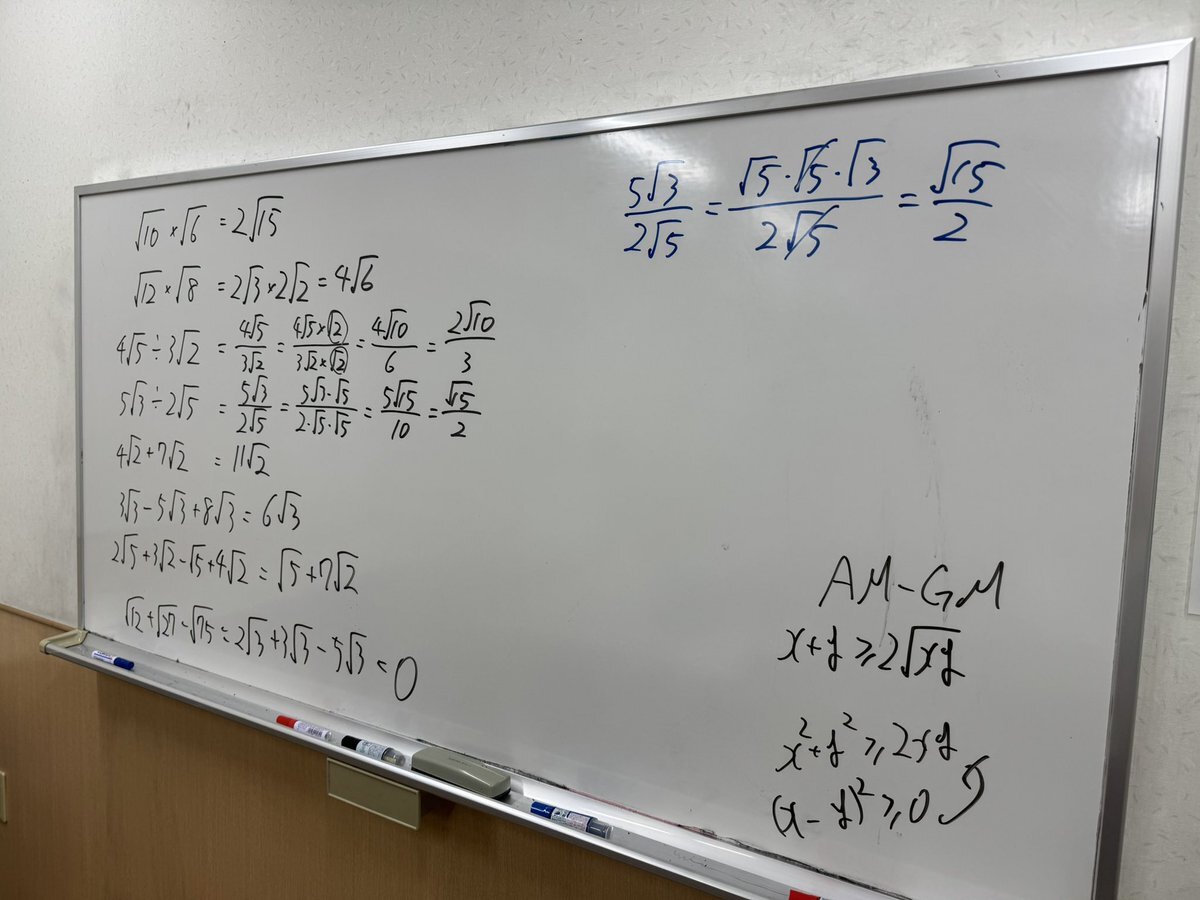 √10 × √6 = 2√15
√12 × √8 = 2√3 × 2√2 = 4√6
4√5 ÷ 3√2 = 4√5/3√2 = 4√5×√2/3√2×√2 = 4√10/6 = 2√10/3
5√3 ÷ 2√5 = 5√3/2√5 = 5√3·√5/2·√5·√5 = 5√15/10 = √15/2
4√2 + 7√2 = 11√2
3√3 - 5√3 + 8√3 = 6√3
2√5 + 3√2 - √5 + 4√2 = √5 + 7√2
√12 + √27 - √75 = 2√3 + 3√3 - 5√3 = 0
5√3/2√5 = √5·√5·√3/2√5 = √15/2
AM-GM
x+y ≥ 2√xy
x²+y² ≥ 2xy
(x-y)² ≥ 0